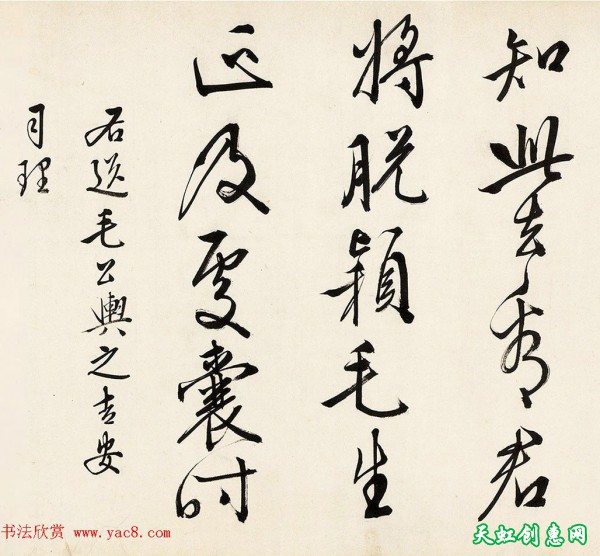 知此去看君
將脫穎毛生
正及處囊時
右送毛公輿之吉安
司理
书法欣赏 www.yac8.com
天虹创惠网